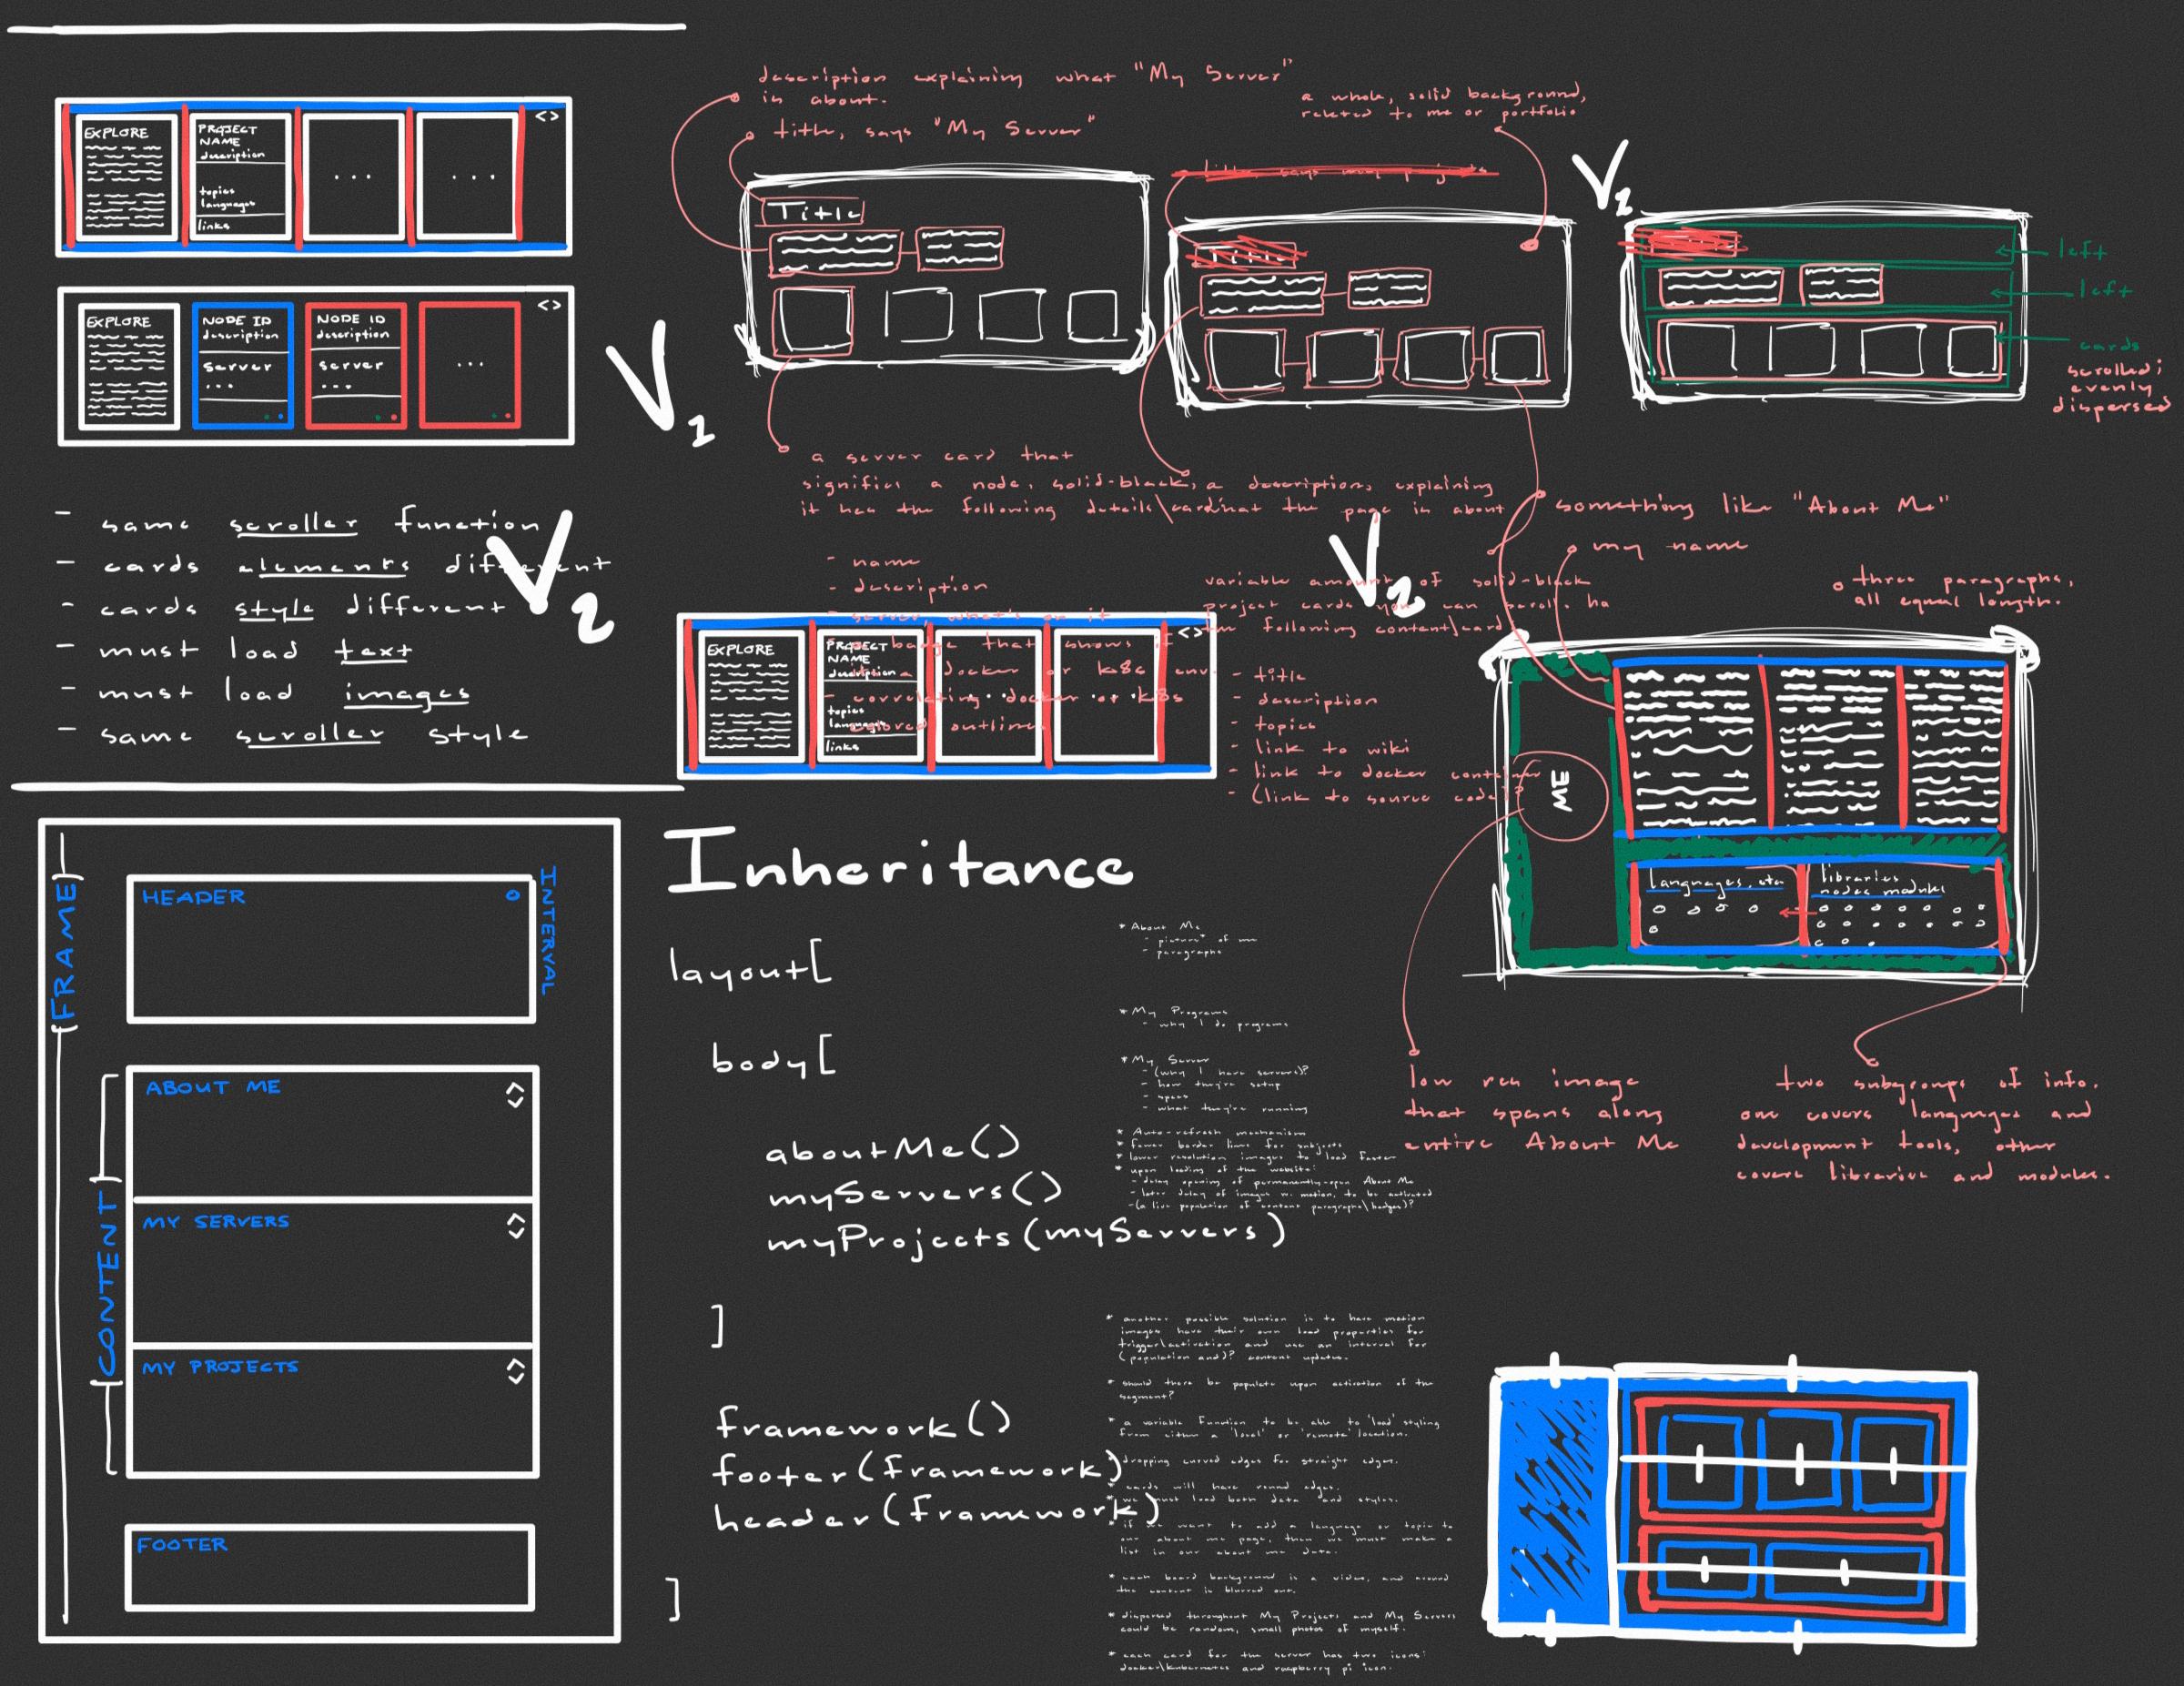 EXPLORE
PROJECT
NAME
description
topics
languages
links
...
...
<>
EXPLORE
NODE ID
description
server
...
NODE ID
description
server
...
...
<>
- same scroller function
- cards elements different
- cards style different
- must load text
- must load images
- same scroller style
V1
V2
description explaining what "My Server"
is about.
title, says "My Server"
Title
a server card that
signifies a node, solid-black,
it has the following details\card
- name
- description
- server, what's on it
badge that shows if
docker or k8s env.
- correlating docker or k8s
colored outline
a whole, solid background,
related to me or portfolio
title, says my projects
a description, explaining
what the page is about
variable amount of solid-black
project cards you can scroll. ha
following content\card
- title
- description
- topics
- link to wiki
- link to docker container
- (link to source code)?
V2
left
left
cards
scrolled;
evenly
dispersed
V2
EXPLORE
PROJECT
NAME
description
topics
languages
links
<>
something like "About Me"
my name
three paragraphs,
all equal length.
ME
languages, etc
libraries
nodes modules
low res image
that spans along
entire About Me
two subgroups of info.
one covers languages and
development tools, other
covers libraries and modules.
FRAME
HEADER
INTERVAL
CONTENT
ABOUT ME
MY SERVERS
MY PROJECTS
FOOTER
Inheritance
layout[
body[
aboutMe()
myServers()
myProjects(myServers)
]
framework()
footer(framework)
header(framework)
]
* About Me
- picture* of me
- paragraphs
* My Programs
- why I do programs
* My Server
- (why I have servers)?
- how they're setup
- specs
- what they're running
* Auto-refresh mechanism
* fewer border lines for subjects
* lower resolution images to load faster
* upon loading of the website:
- delay opening of permanently-open About Me
- later delay of images w. motion, to be activated
- (a live population of content paragraphs\badges)?
* another possible solution is to have motion
images have their own load properties for
trigger\activation and use an interval for
(population and)? content updates.
* should there be populate upon activation of the
segment?
* a variable Function to be able to 'load' styling
from either a 'local' or 'remote' location.
dropping curved edges for straight edges.
* cards will have round edges.
* we must load both data and styles.
* if we want to add a language or topic to
our about me page, then we must make a
list in our about me data.
* each board background is a video, and around
the content is blurred out.
* dispersed throughout My Projects and My Servers
could be random, small photos of myself.
* each card for the server has two icons:
docker\kubernetes and raspberry pi icon.